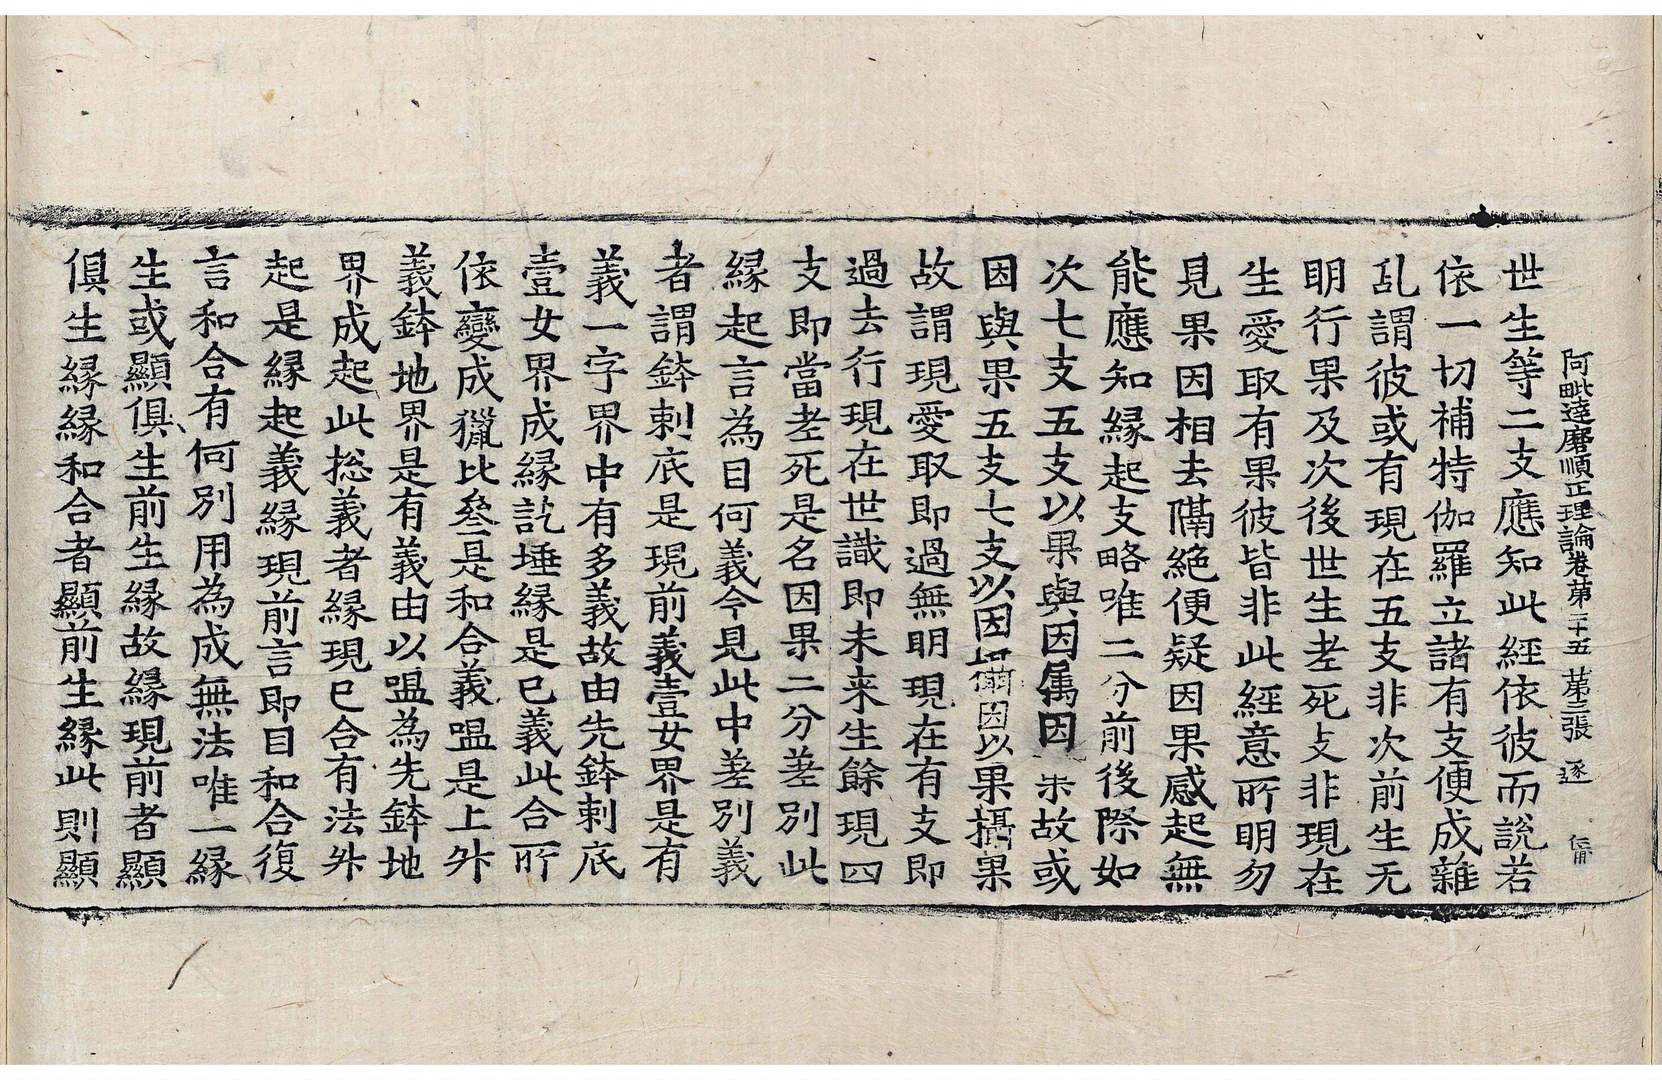 阿毗達磨順正理論卷第二十五 第三張 逐
世生等二支應知此經依彼而說若
依一切補特伽羅立諸有支便成雜
乱謂彼或有現在五支非次前生无
明行果及次後世生老死支非現在
生愛取有果彼皆非此經意所明勿
見果因相去隔絕便疑因果感起無
能應知縁起支略唯二分前後際如
次七支五支以果與因属因果故或
因與果五支七支以因攝因以果攝果
故謂現愛取即過無明現在有支即
過去行現在世識即未来生餘現四
支即當老死是名因果二分差別此
縁起言為目何義今見此中差別義
者謂鉢剌底是現前義壹女界是有
義一字界中有多義故由先鉢剌底
壹女界成縁訖埵縁是已義此合所
依變成獵比叄是和合義嗢是上外
義鉢地界是有義由以嗢為先鉢地
界成起此捴義者縁現已合有法外
起是縁起義縁現前言即目和合復
言和合有何別用為成無法唯一縁
生或顯俱生前生縁故縁現前者顯
俱生縁縁和合者顯前生縁此則顯